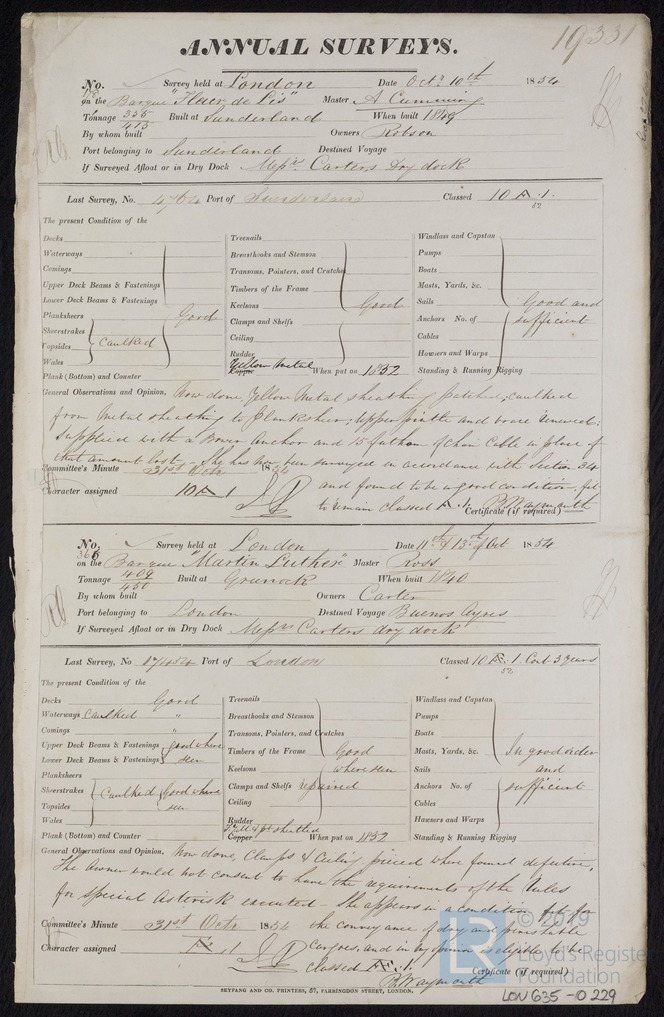 19331
ANNUAL SURVEYS.
No. Survey held at London Date Octr 10th 1854
on the Barque "Fleur de Lis" Master A Cumming
Tonnage 335 / 413 Built at Sunderland When built 1849
By whom built Owners Robson
Port belonging to Sunderland Destined Voyage
If Surveyed Afloat or in Dry Dock Messrs Carters Dry dock
Last Survey, No. Port of Sunderland Classed 10 A. 1.
52
The present Condition of the
Decks Treenails Windlass and Capstan
Waterways Breasthooks and Stemson Pumps
Comings Transoms, Pointers, and Crutches Boats
Upper Deck Beams & Fastenings Timbers of the Frame Masts, Yards, &c.
Lower Deck Beams & Fastenings Keelsons Good Sails Good and
Planksheers Good Clamps and Shelfs Anchors No. of sufficient
Sheerstrakes Caulked Ceiling Cables
Topsides Rudder Hawsers and Warps
Wales Yellow Metal
Plank (Bottom) and Counter Copper When put on 1852 Standing & Running Rigging
General Observations and Opinion, Now done, Yellow Metal sheathing patched, caulked
from Metal sheathing to Planksheer, renewed;
supplied with a Bower Anchor and 15 fathom of Chain Cable in place of
that amount lost - She has now been surveyed in accordance with Section 34
Committee's Minute 31st Octr 1854 and found to be in good condition fit
Character assigned 10 A 1 to remain classed A. 1.
Certificate (if required) Waymouth
No. Survey held at London Date 11th & 13th of Oct 1854
on the Barque "Martin Luther" Master Ross
Tonnage 409 / 450 Built at Greenock When built 1840
By whom built Owners Carter
Port belonging to London Destined Voyage Buenos Ayres
If Surveyed Afloat or in Dry Dock Messrs Carters dry dock
Last Survey, No Port of London Classed 10 A. 1. Cont 3 years
52
The present Condition of the
Decks Good Treenails Windlass and Capstan
Waterways Caulked " Breasthooks and Stemson Pumps
Comings " Transoms, Pointers, and Crutches Boats
Upper Deck Beams & Fastenings good where Timbers of the Frame Good Masts, Yards, &c. In good order
Lower Deck Beams & Fastenings seen Keelsons where seen Sails and
Planksheers Clamps and Shelfs repaired Anchors No. of sufficient
Sheerstrakes Caulked Good where Ceiling Cables
Topsides seen Rudder Hawsers and Warps
Wales Felt & sheathed
Plank (Bottom) and Counter Copper When put on 1852 Standing & Running Rigging
General Observations and Opinion, Now done, Clamps & Ceiling pieced where found defective,
The Owner would not consent to have the requirements of the Rules
for special Asterisk executed - She appears in a condition fit for
Committee's Minute 31st Octr 1854 the conveyance of dry and perishable
Character assigned A 1 Cargoes, and in my opinion eligible to be
classed A. 1.
Certificate (if required)
Waymouth
SKYFANG AND CO. PRINTERS, 57, FARRINGDON STREET, LONDON.
LR © 2019
Lloyd's Register
Foundation
LON 635 - 0229